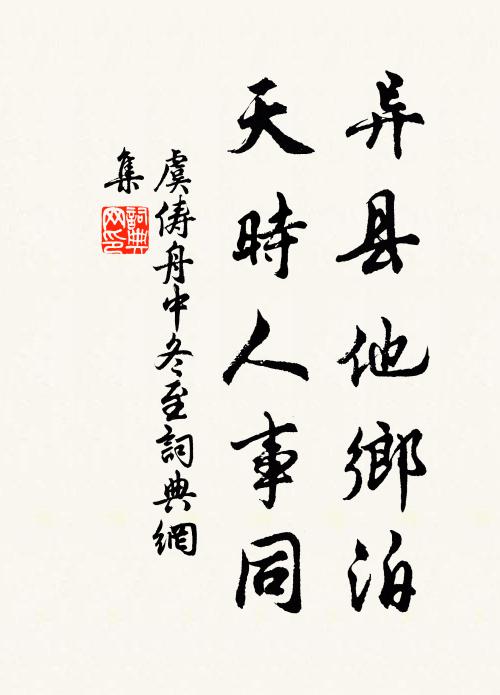 异县他鄉泊
天時人事同
虞俦舟中冬至詞典網
集
詞典网印